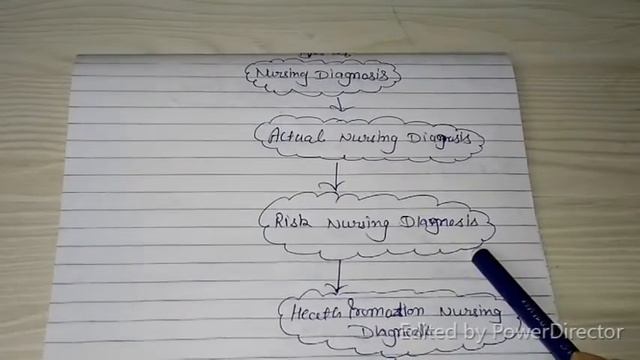 Nursing Diagnosis
Actual Nursing Diagnosis
Risk Nursing Diagnosis
Health Promotion Nursing
Edited by PowerDirector